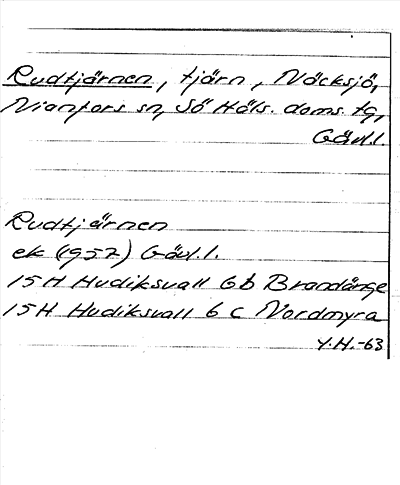 Rudtjärnen, tjärn, Näcksjö,
Nianfors sn, Sö Häls. doms. tg,
Gävl.l.
Rudtjärnen
ek (1957) Gävl.l.
15H Hudiksvall 6b Brandänge
15H Hudiksvall 6c Nordmyra
Y.H.-63